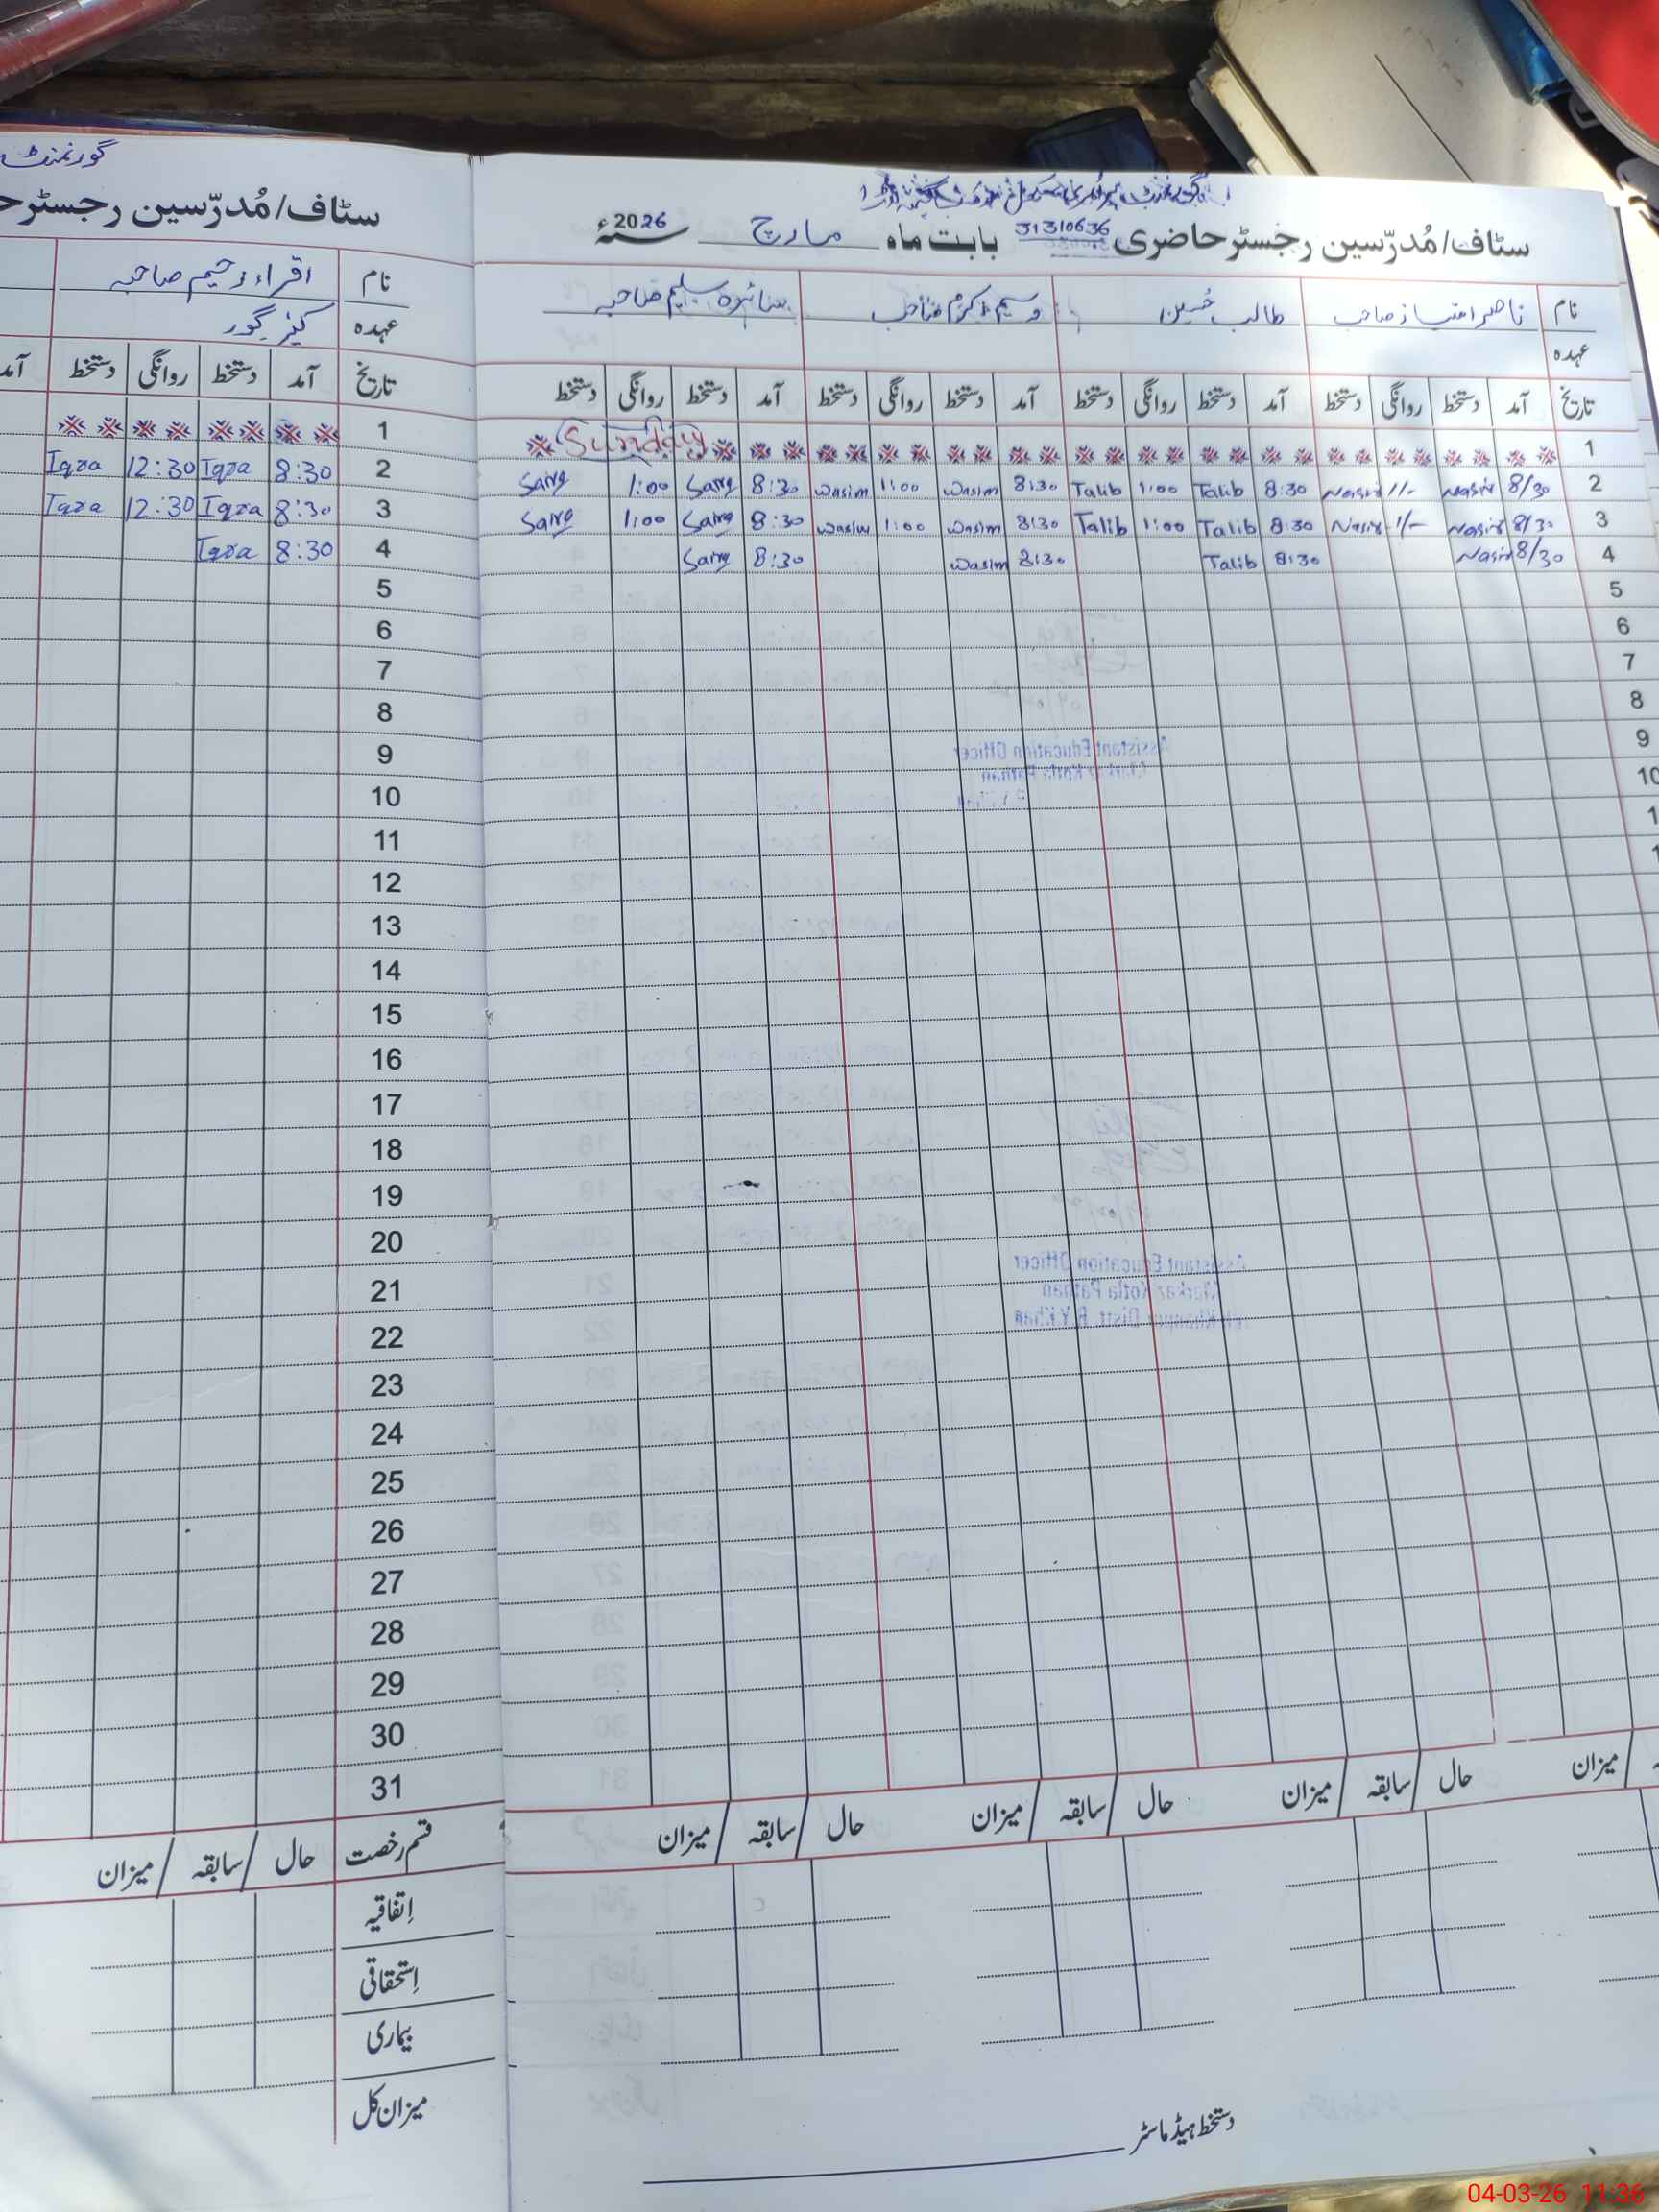 گورنمنٹ
سٹاف/مُدرّسین رجسٹر
نام اقراء رحیم صاحبہ
عہدہ کیئر گور
تاریخ آمد دستخط روانگی دستخط آمد
1
2 8:30 Iqra 12:30 Iqra
3 8:30 Iqra 12:30 Iqra
4 8:30 Iqra
5
6
7
8
9
10
11
12
13
14
15
16
17
18
19
20
21
22
23
24
25
26
27
28
29
30
31
قسم رخصت حال / سابقہ / میزان
اِتفاقیہ
اِستحقاقی
بیماری
میزان کل
سٹاف/مُدرّسین رجسٹر حاضری 31310636 بابت ماہ مارچ سنہ 2026ء
نام ناصر امتیاز صاحب طالب حُسین وسیم اکرم صاحب سائرہ سلیم صاحبہ
عہدہ
تاریخ آمد دستخط روانگی دستخط آمد دستخط روانگی دستخط آمد دستخط روانگی دستخط آمد دستخط روانگی دستخط
1 Sunday
2 8/30 Nasir 1/- Nasir 8:30 Talib 1:00 Talib 8:30 Wasim 1:00 Wasim 8:30 Saira 1:00 Saira
3 8/30 Nasir 1/- Nasir 8:30 Talib 1:00 Talib 8:30 Wasim 1:00 Wasim 8:30 Saira 1:00 Saira
4 8/30 Nasir 8:30 Talib 8:30 Wasim 8:30 Saira
5
6
7
8
9
10
1
1
Assistant Education Officer
Assistant Education Officer
Markaz Kotla Pathan
Distt. R.Y.Khan
میزان حال / سابقہ / میزان حال / سابقہ / میزان حال / سابقہ / میزان
دستخط ہیڈ ماسٹر
04-03-26 11:36